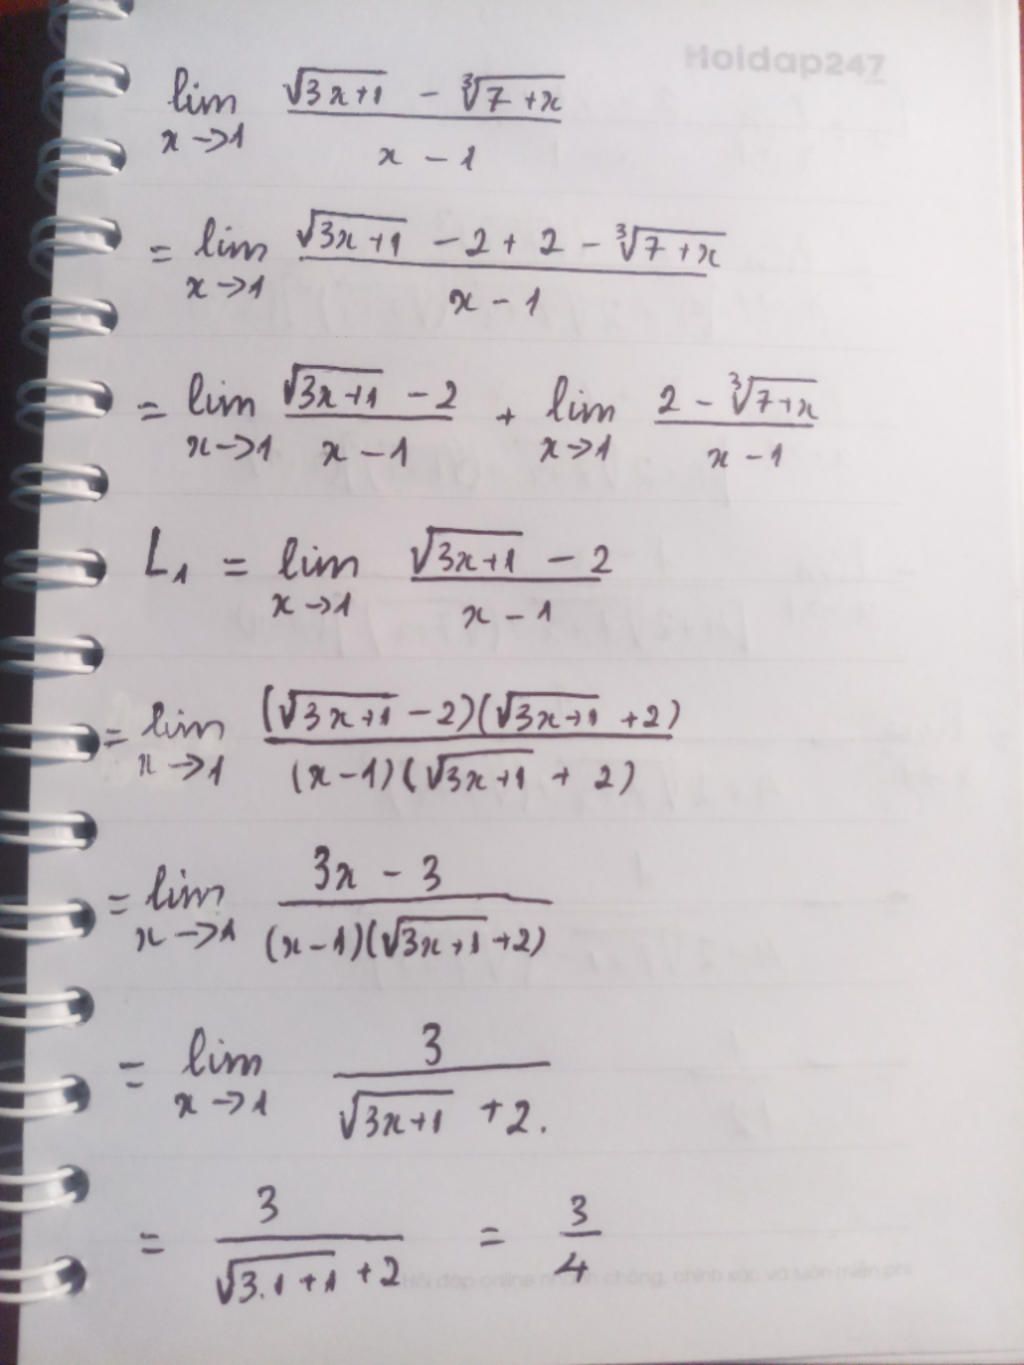 Hoidap247
lim x→1 (√(3x+1) - ∛(7+x)) / (x - 1)
= lim x→1 (√(3x+1) - 2 + 2 - ∛(7+x)) / (x - 1)
= lim x→1 (√(3x+1) - 2) / (x - 1) + lim x→1 (2 - ∛(7+x)) / (x - 1)
L₁ = lim x→1 (√(3x+1) - 2) / (x - 1)
= lim x→1 ((√(3x+1) - 2)(√(3x+1) + 2)) / ((x-1)(√(3x+1) + 2))
= lim x→1 (3x - 3) / ((x-1)(√(3x+1) + 2))
= lim x→1 3 / (√(3x+1) + 2).
= 3 / (√(3.1+1) + 2) = 3/4
Hỏi đáp online nhanh chóng, chính xác và luôn miễn phí